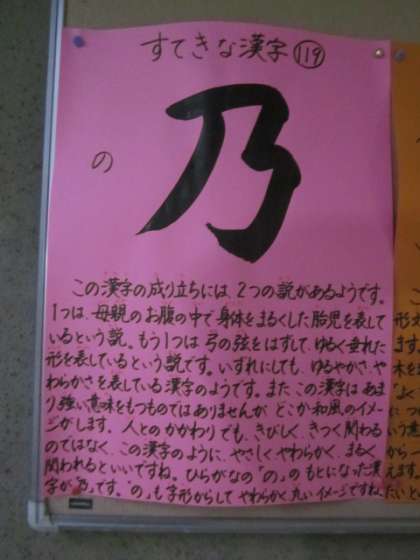 すてきな漢字 119
の
乃
この漢字の成り立ちには、2つの説があるようです。
1つは、母親のお腹の中で身体をまるくした胎児を表して
いるという説。もう1つは弓の弦をはずして、ゆるく垂れた
形を表しているという説です。いずれにしても、ゆるやかさ、や
わらかさを表している漢字のようです。また この漢字はあま
り強い意味をもつものではありませんが、どこか和風のイメー
ジがします。人とのかかわりでも、きびしく、きつく関わる
のではなく、この漢字のように、やさしく、やわらかく、まるく
関われるといいですね。ひらがなの“の”のもとになった漢
字が“乃”です。“の”も字形からして やわらかく丸いイメージですね。